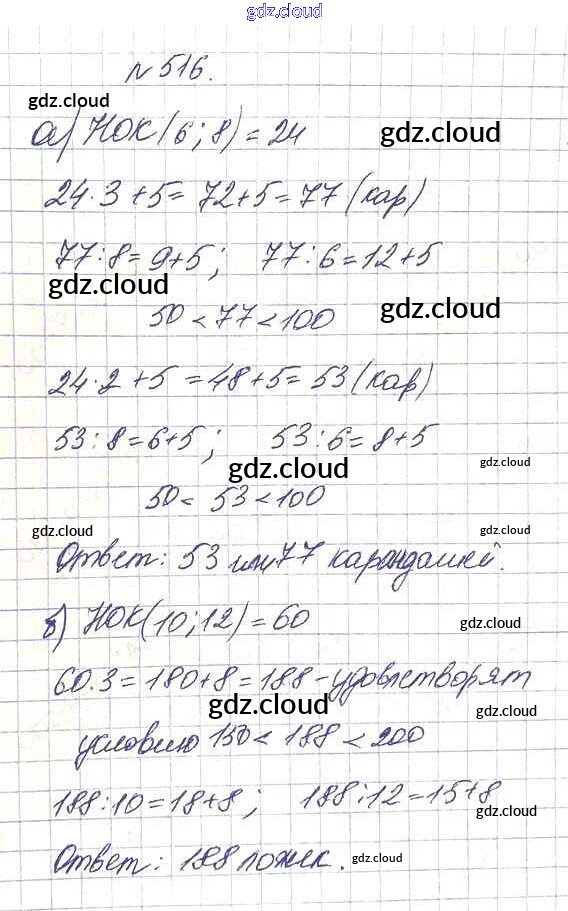 gdz.cloud
gdz.cloud
№516.
gdz.cloud
а) НОК(6;8)=24
gdz.cloud
24·3+5=72+5=77(кар)
77:8=9+5; 77:6=12+5
gdz.cloud
gdz.cloud
50<77<100
24·2+5=48+5=53(кар)
53:8=6+5; 53:6=8+5
gdz.cloud
gdz.cloud
50<53<100
gdz.cloud
gdz.cloud
Ответ: 53 или 77 карандашей.
б) НОК(10;12)=60
gdz.cloud
60.3=180+8=188-удовлетворят
gdz.cloud
gdz.cloud
условию 150<188<200
188:10=18+8; 188:12=15+8
gdz.cloud
Ответ: 188 ложек.
gdz.cloud